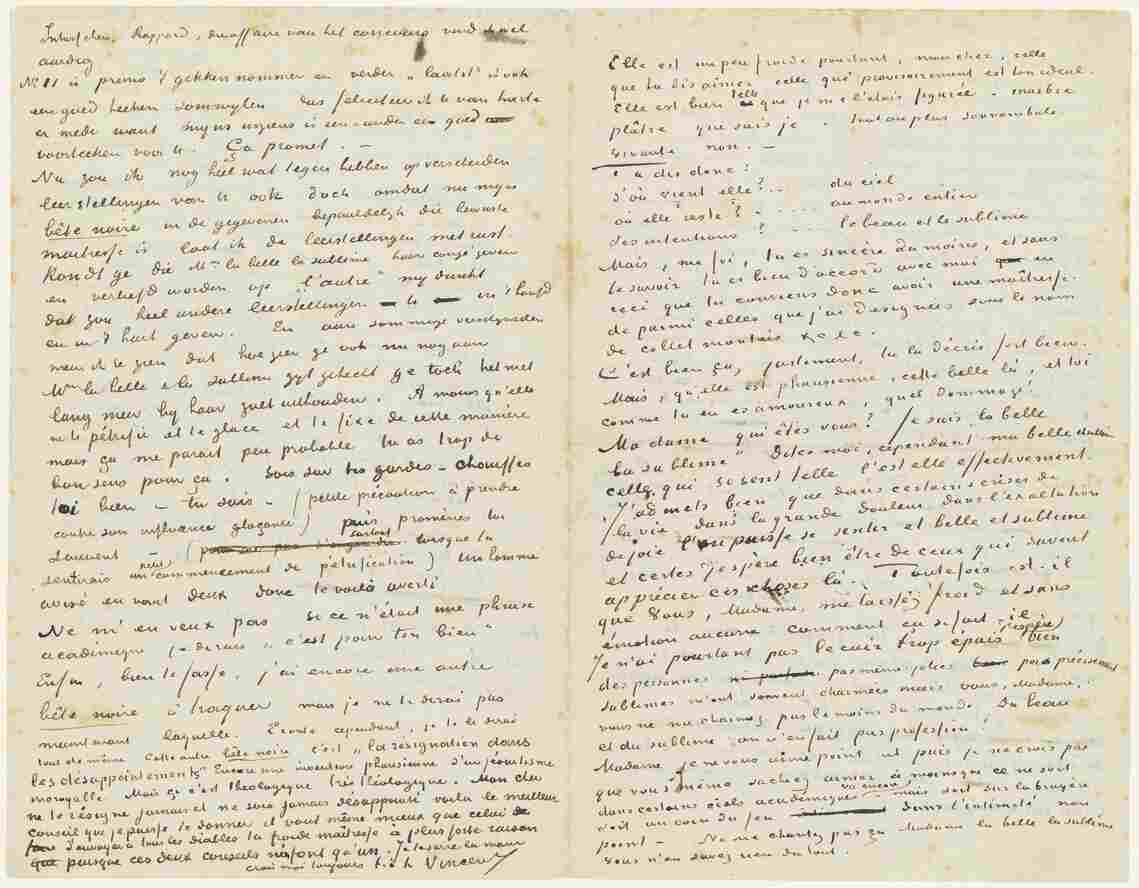 Intusschen, Rappard, die affaire van het concours vind ik wel
aardig
No 11 is primo 't gekken nommer en verder „laatst" is ook
een goed teeken sommwylen dus feliciteer ik U van harte
er mede want mijns inziens is een ander een goed
voorteeken voor U. Ça promet. —
Nu zou ik nog heel wat tegen hebben op verscheiden
leerstellingen van U ook doch omdat nu mijn
bête noire in de gegeven bepaaldelyk die bewuste
maitresse is laat ik de leerstellingen met rust.
Kondt ge die Mme la belle la sublime haar congé geven
en verliefd worden op "l'autre" my dunkt
dat zou heel andere leerstellingen U in 't hoofd
en in 't hart geven. En aan sommige verschynselen
meen ik te zien dat hoe zeer ge ook nu nog aan
Mme la belle et la sublime zyt gehecht ge toch het niet
lang meer by haar zult uithouden. A moins qu'elle
ne te pétrifie et te glace et te fixe de cette manière
mais ça me parait peu probable tu as trop de
bon sens pour ça. Sois sur tes gardes — chauffes
toi bien — tu sais — (petite précaution à prendre
contre son influence glaçante) puis promènes toi
souvent — (surtout lorsque tu
sentirais un commencement de pétrification) Un homme
averti en vaut deux donc te voilà averti
Ne m'en veux pas si ce n'était une phrase
academique je dirais „c'est pour ton bien"
Enfin, bien te fasse, j'ai encore une autre
bête noire à traquer mais je ne te dirai pas
maintenant laquelle. Ecoute cependant, je te le dirai
tout de même Cette autre bête noire c'est „la résignation dans
les désappointements" Encore une invention pharisienne d'un jesuitisme
incroyable Mais ça c'est theologique très théologique. Mon cher
ne te résigne jamais et ne sois jamais désappointé voilà le meilleur
conseil que je puisse te donner il vaut même mieux que celui de
d'envoyer à tous les diables ta froide maîtresse à plus forte raison
puisque ces deux conseils n'en font qu'un. Je te serre la main
crois moi toujours t. à t. Vincent
Elle est un peu froide pourtant, mon cher, celle
que tu dis aimer celle que provisoirement est ton ideal.
Elle est bien telle que je me l'étais figurée — marbre
plâtre que sais je — tout au plus somnambule.
Vivante non. —
Tu dis donc:
D'où vient elle? — . . . . du ciel
où elle reste? — . . . . au monde entier
des intentions? — . . . . le beau et le sublime
Mais, ma foi, tu es sincère du moins, et sans
le savoir tu es bien d'accord avec moi en
ceci que tu conviens donc avoir une maîtresse.
de parmi celles que j'ai designées sous le nom
de collet montais &c &c.
C'est bien ça, justement, tu la décris fort bien.
Mais, qu'elle est pharisienne, cette belle là, et toi
comme tu en es amoureux, quel dommage!
Madame qui êtes vous? Je suis la belle
la sublime" Dites moi, cependant ma belle dame
celle, qui se sent telle l'est elle effectivement.
J'admets bien que dans certaines crises de
la vie dans la grande douleur dans l'exaltation
de joie l'on puisse se sentir et belle et sublime
et certes j'espère bien être de ceux qui savent
apprécier ces choses là. Toutefois est-il
que Vous, Madame, me laissez froid et sans
émotion aucune comment ça se fait-il.
Je n'ai pourtant pas le cuir trop épais (j'espère) bien
des personnes pas même jolies pas précisement
sublimes m'ont souvent charmées mais vous, Madame,
vous ne me charmez pas le moins du monde. Du beau
et du sublime on n'en fait pas profession!
Madame je ne vous aime point et puis je ne crois pas
que vous même sachez aimer à moins que ce ne soit
dans certains ciels académiques mais soit sur la bruyère
soit au coin du feu dans l'intimité non
point — Ne me chantez pas ça Madame la belle la sublime
Vous n'en savez rien du tout.